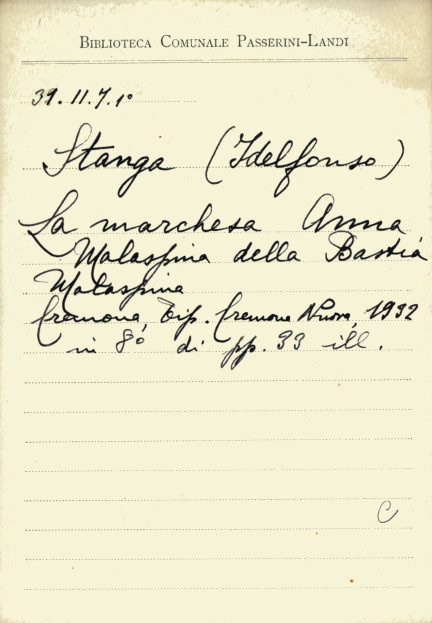 BIBLIOTECA COMUNALE PASSERINI-LANDI
39.11.7.1º
Stanga (Idelfonso)
La marchesa Anna
Malaspina della Bastia
Malaspina
Cremona, Tip. Cremona Nuova, 1932
in 8º di pp. 33 ill.
C